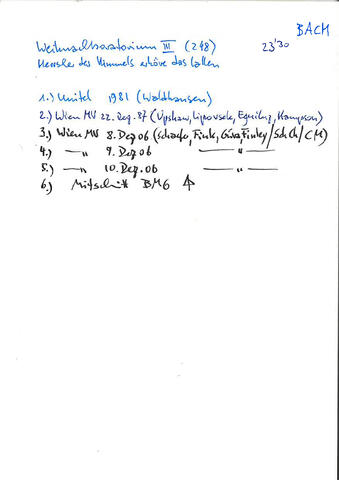 BACH
Weihnachtsoratorium III (248) 23'30
Herrscher des Himmels erhöre das Lallen
1.) Unitel 1981 (Waldhausen)
2.) Wien MV 22. Dez. 87 (Upshaw, Lipovsek, Equiluz, Hampson)
3.) Wien MV 8. Dez 06 (Schäfer, Fink, Güra, Finley / SchCh / CM)
4.) —"— 9. Dez 06 —"—
5.) —"— 10. Dez. 06 —"—
6.) Mitschnitt BMG